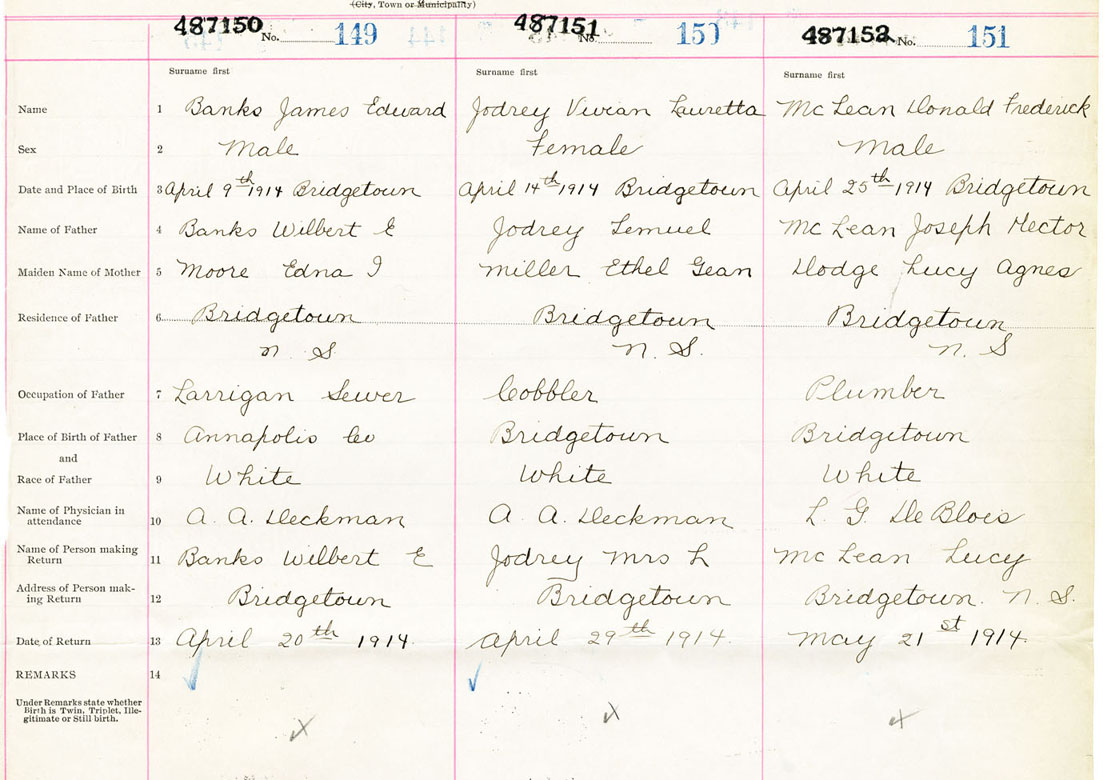 (City, Town or Municipality)
487150 No. 149 487151 No. 150 487152 No. 151
Surname first Surname first Surname first
Name 1 Banks James Edward Jodrey Vivian Lauretta McLean Donald Frederick
Sex 2 Male Female Male
Date and Place of Birth 3 April 9th 1914 Bridgetown April 14th 1914 Bridgetown April 25th 1914 Bridgetown
Name of Father 4 Banks Wilbert E Jodrey Lemuel McLean Joseph Hector
Maiden Name of Mother 5 Moore Edna I Miller Ethel Gean Dodge Lucy Agnes
Residence of Father 6 Bridgetown Bridgetown Bridgetown
N. S. N. S. N. S
Occupation of Father 7 Larrigan Sewer Cobbler Plumber
Place of Birth of Father 8 Annapolis Co Bridgetown Bridgetown
and
Race of Father 9 White White White
Name of Physician in
attendance 10 A. A. Deckman A. A. Deckman L. G. DeBlois
Name of Person making
Return 11 Banks Wilbert E Jodrey Mrs L McLean Lucy
Address of Person mak-
ing Return 12 Bridgetown Bridgetown Bridgetown. N. S.
Date of Return 13 April 20th 1914. April 29th 1914. May 21st 1914.
REMARKS 14
Under Remarks state whether
Birth is Twin, Triplet, Ille-
gitimate or Still birth.